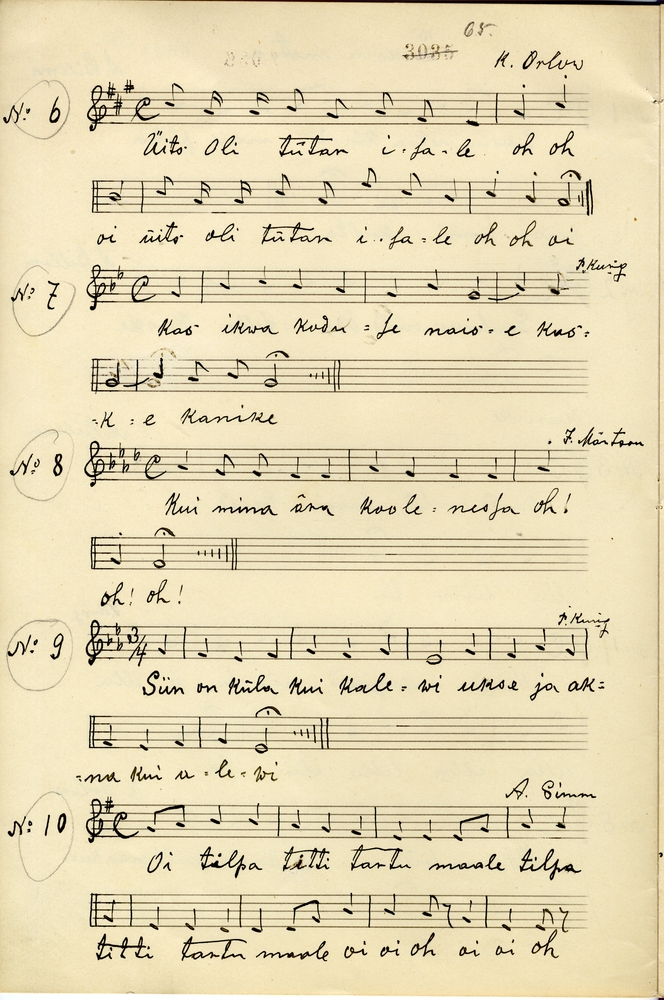 65.
3035
K. Orlow
No: 6
Üits Oli tütar i-sa-le oh oh
oi üits oli tütar i-sa-le oh oh oi
P. Kurig
No: 7
Kas ikwa kodu-se nais-e kus-
-k-e kanike
J. Märtson
No: 8
Kui mina ära koole-nessa oh!
oh! oh!
P. Kurig
No: 9 3/4
Siin on küla kui Kale-wi ukse ja ak-
-na kui a-le-wi
A. Simm
No: 10
Oi tilpa titti tartu maale tilpa
titti tartu maale oi oi oh oi oi oh